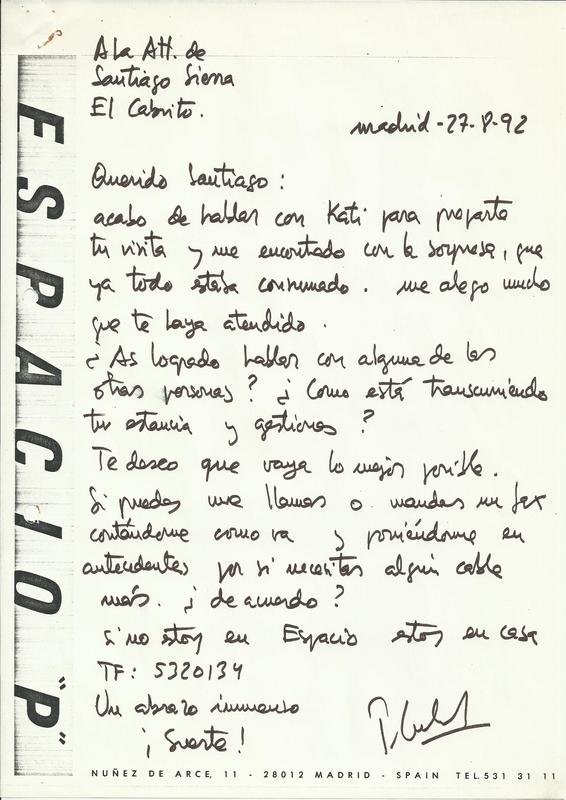 ESPACIO "P"
A la Att. de
Santiago Sierra
El Cabrito.
madrid - 27-8-92
Querido Santiago :
acabo de hablar con Kati para preparte
tu visita y me encontado con la sorpresa, que
ya todo estaba consumado. me alego mucho
que te haya atendido.
¿ As logrado hablar con alguna de las
otras personas ? ¿ Como está transcurriendo
tu estancia y gestiones ?
Te deseo que vaya lo mejor posible.
Si puedes me llamas o mandas un fax
contándome como va y poniéndome en
antecedentes por si necesitas algún cable
más. ¿ de acuerdo ?
Si no estoy en Espacio estoy en casa
TF: 5320134
Un abrazo inmenso
¡ Suerte !
NUÑEZ DE ARCE, 11 - 28012 MADRID - SPAIN TEL. 531 31 11